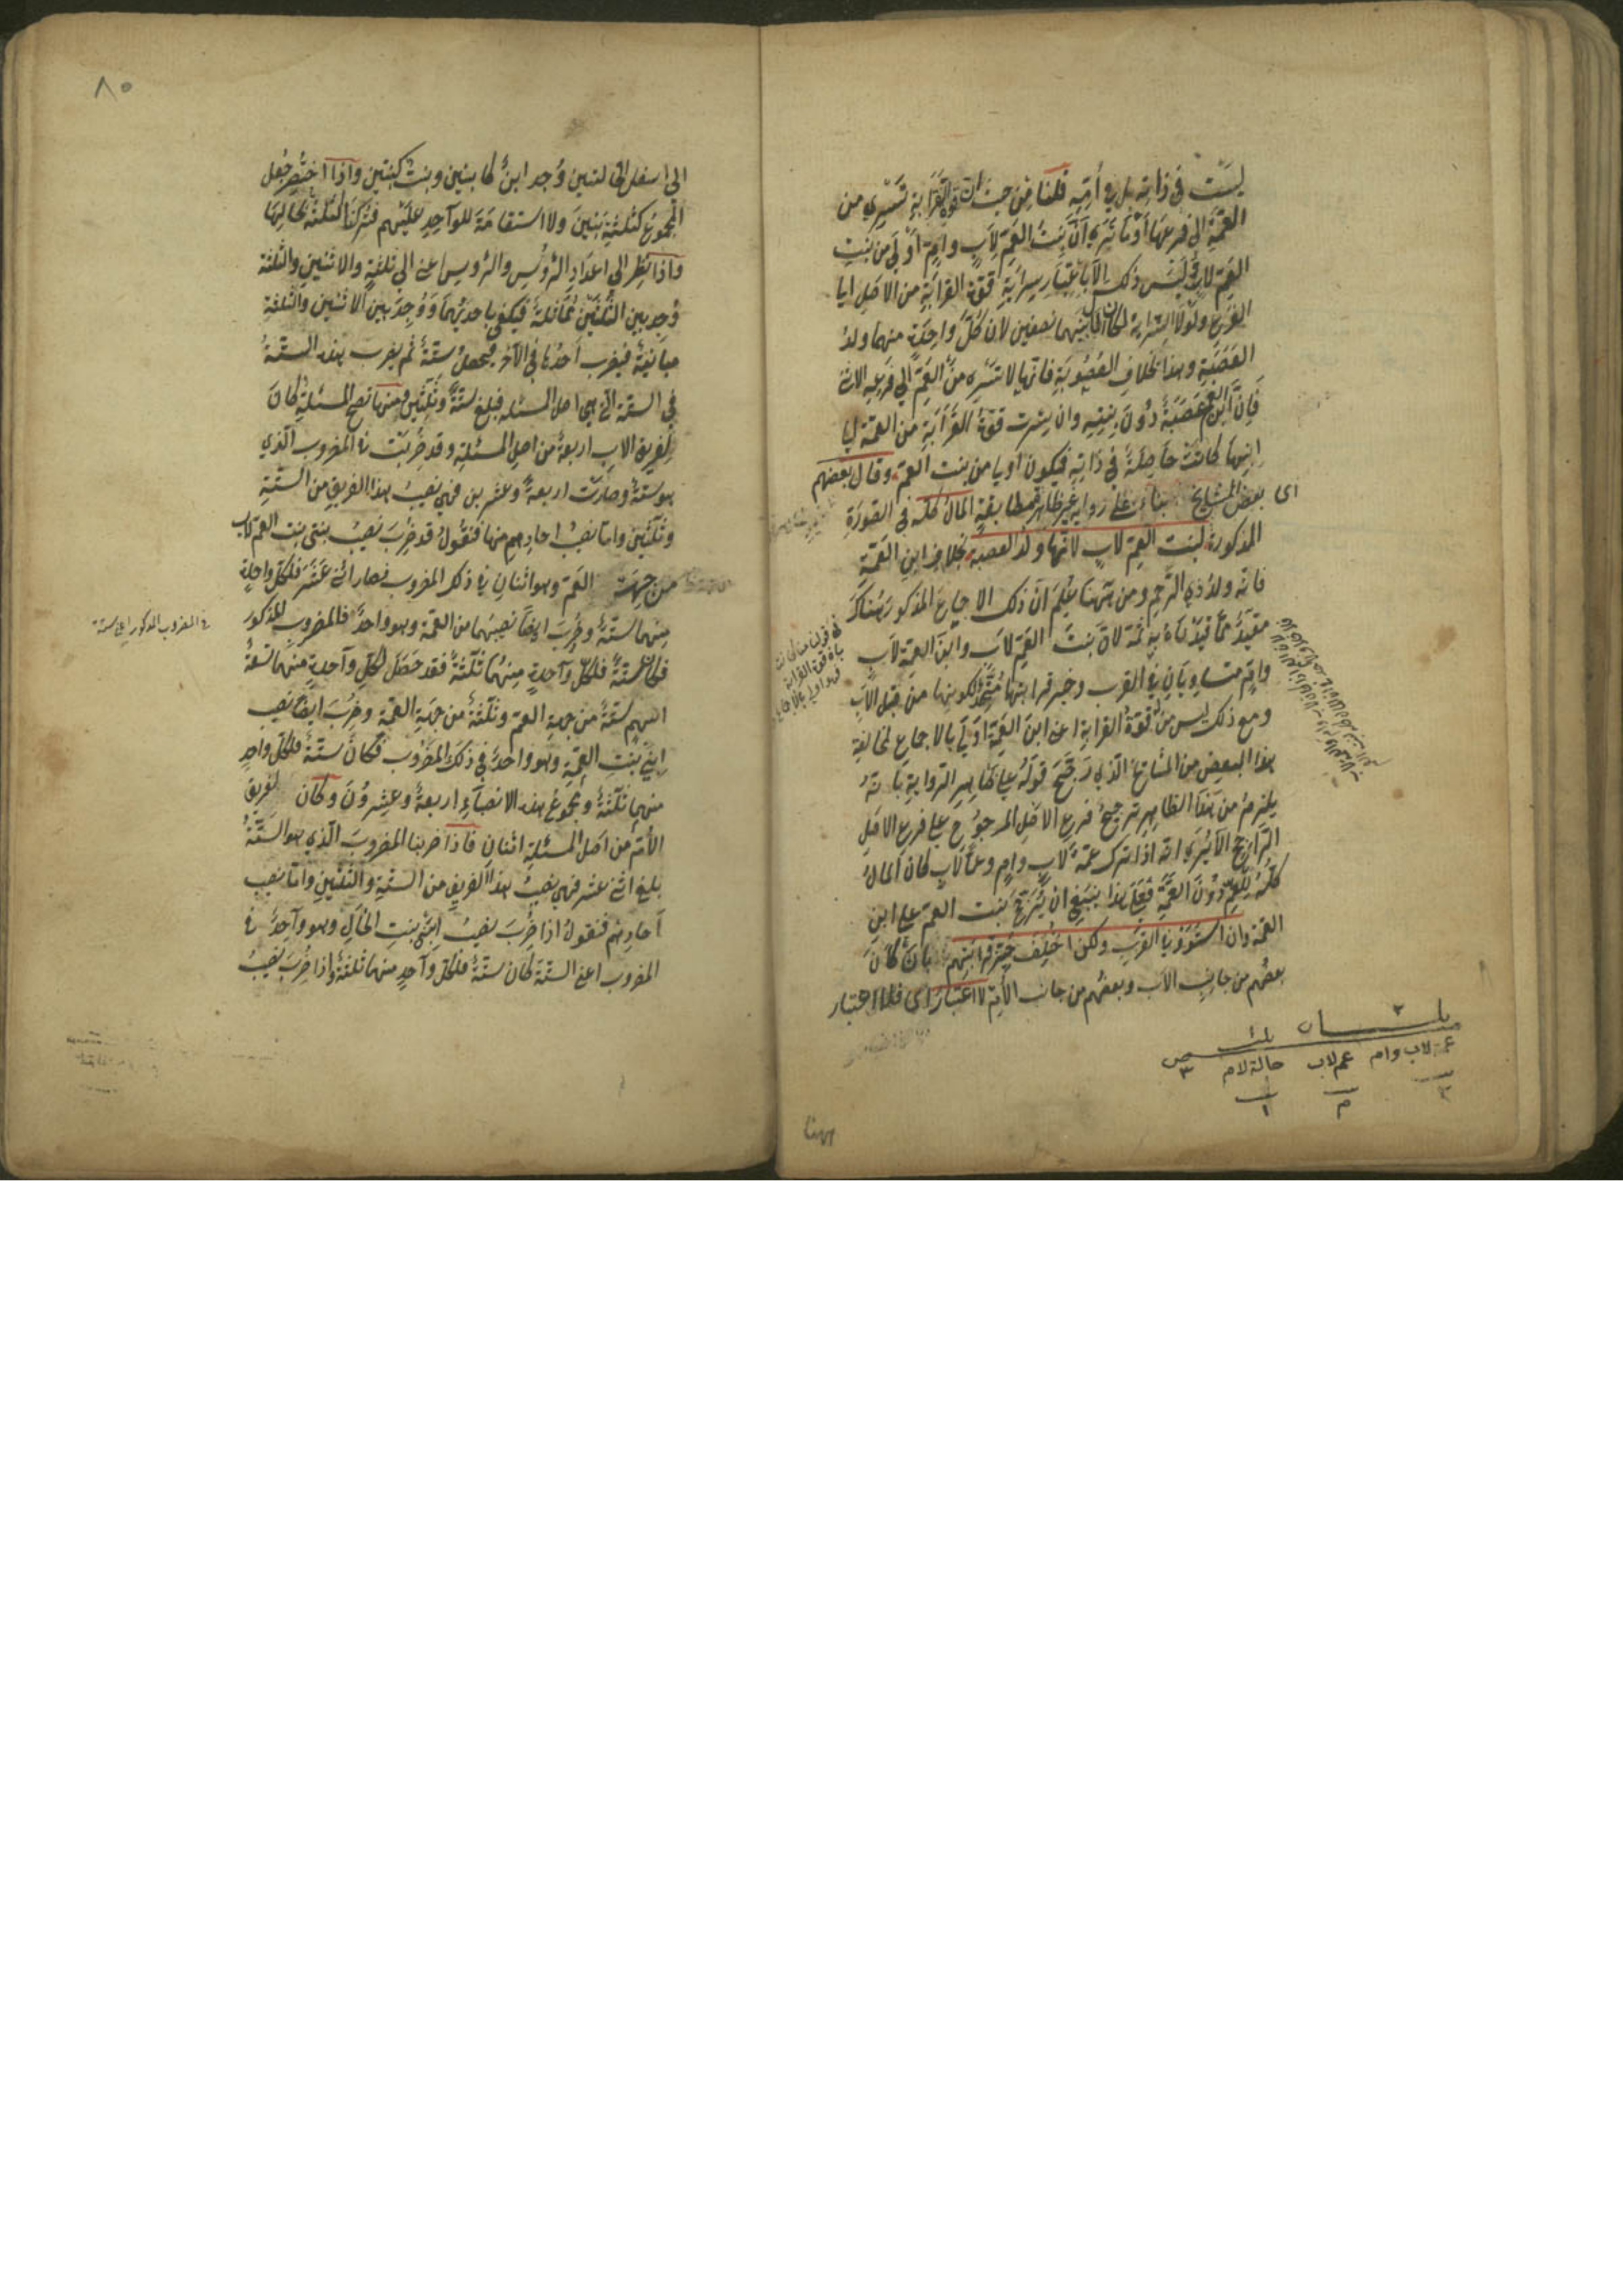 ليست في ذاته بل في أمه قلنا من حيث ان قوة القرابة تسري من
العمة الى فرعها أو لا ترى أن بنت العم لاب وام أولى من بنت
العم لاب وليس ذلك الا باعتبار سراية قوة القرابة من الاصل الى
الفرع ولولا السراية لكان المال بينهما نصفين لان كل واحدة منهما ولد
العصبة وهذا بخلاف العصوبة فانها لا تسري من العم الى فرعه الانثى
فان ابن العم عصبة دون بنته وان سرت قوة القرابة من العمة الى
ابنها كانت حاصلة في ذاته فيكون أولى من بنت العم وقال بعضهم
اى بعض المشايخ بناء على رواية غير ظاهرة المال كله في الصورة
المذكورة لبنت العم لاب لانها ولد العصبة بخلاف ابن العمة
فانه ولد ذي الرحم ومن ههنا علم ان ذلك الاجماع المذكور هناك
مقيد بما قيدناه به ثمة لان بنت العم لاب وابن العمة لاب
وام متساويان في القرب وحيز قرابتهما متحد لكونهما من قبل الاب
ومع ذلك ليس من له قوة القرابة اعنى ابن العمة اولى بالاجماع لمخالفة
هذا البعض من المشايخ الذي رجح قوله على ظاهر الرواية بانه
يلزم من هذا الظاهر ترجيح فرع الاصل المرجوح على فرع الاصل
الراجح الا يرى انه اذا ترك عمة لاب وام وعما لاب كان المال
كله للعم دون العمة فعلى هذا ينبغي ان يرجح بنت العم على ابن
العمة وان استووا في القرب ولكن اختلف حيز قرابتهم بان كان
بعضهم من جانب الاب وبعضهم من جانب الام لا اعتبار اى فلا اعتبار
ثلثان ثلث
عمة لاب وام عم لاب خالة لام
٣
٨٥
الى اسفل التي لبنتين وجد ابن كابنين وبنت كبنتين واذا اختصر جعل
المجموع كثلثة بنين ولا استقامة للواحد عليهم فتركنا الثلثة بحالها
واذا نظر الى اعداد الرؤس والرؤس اعنى الى ثلثة والاثنين والثلثة
وجد بين الثلثتين مماثلة فيكتفى باحديهما ووجد بين الاثنين والثلثة
مباينة فيضرب احدها في الآخر فيحصل ستة ثم يضرب هذه الستة
في الستة التي هي اصل المسئلة فبلغ ستة وثلثين ومنها تصح المسئلة كان
لفريق الاب اربعة من اصل المسئلة وقد ضربت في المضروب الذي
هو ستة وصارت اربعة وعشرين فهي نصيب هذا الفريق من الستة
وثلثين واما نصيب احادهم منها فنقول قد ضرب نصيب بنتى بنت العم لاب
من جهة العم وهو اثنان في ذلك المضروب فصار اثنى عشر فلكل واحدة
منهما ستة وضرب ايضا نصيبهما من العمة وهو واحد فالمضروب المذكور
فكان ستة فلكل واحدة منهما ثلثة فقد حصل لكل واحدة منهما تسعة
اسهم ستة من جهة العم وثلثة من جهة العمة وضرب ايضا نصيب
ابنى بنت العمة وهو واحد في ذلك المضروب فكان ستة فلكل واحد
منهم ثلثة ومجموع هذه الانصباء اربعة وعشرون وكان لفريق
الام من اصل المسئلة اثنان فاذا ضربنا المضروب الذي هو الستة
بلغ اثنى عشر فهي نصيب هذا الفريق من الستة والثلثين واما نصيب
آحادهم فنقول اذا ضرب نصيب ابنتى بنت الخال وهو واحد في
المضروب اعنى الستة كان ستة فلكل واحد منهما ثلثة واذا ضرب نصيب
في المضروب المذكور اعنى ستة